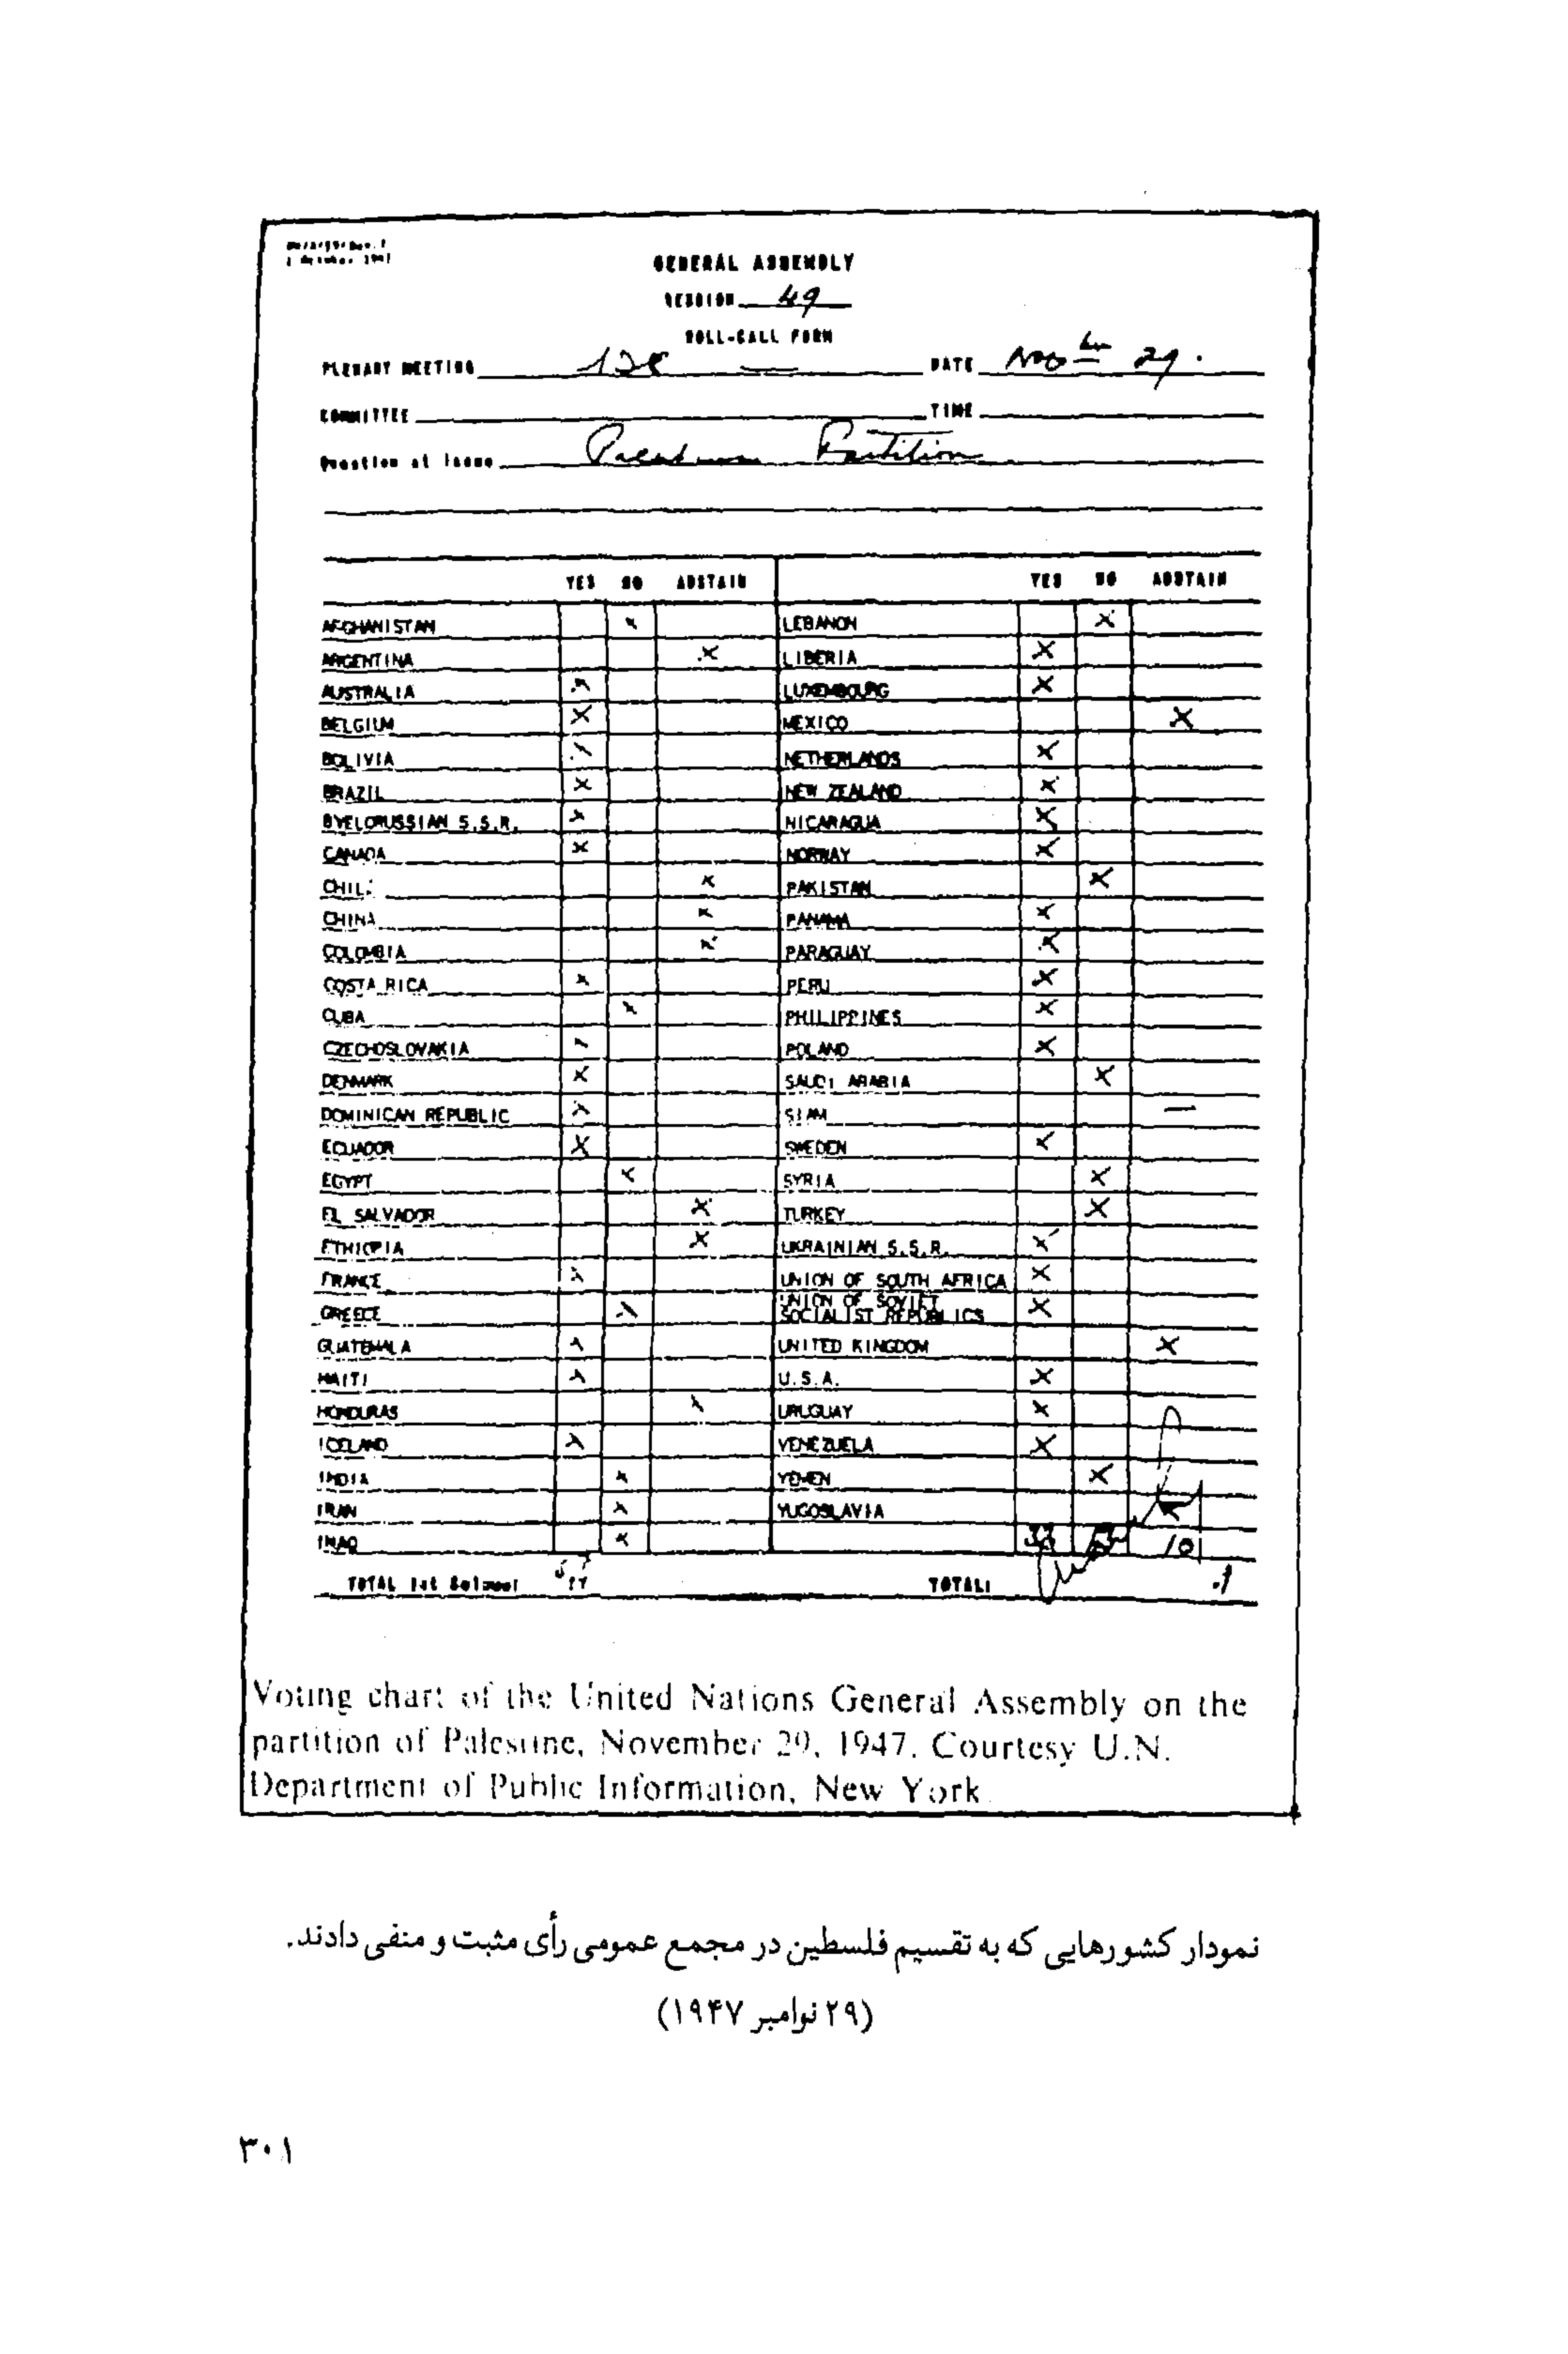 GENERAL ASSEMBLY
SESSION 49
ROLL-CALL FORM
PLENARY MEETING DATE Nov 29.
COMMITTEE TIME
Question at issue Partition
YES NO ABSTAIN YES NO ABSTAIN
AFGHANISTAN x LEBANON x
ARGENTINA x LIBERIA x
AUSTRALIA x LUXEMBOURG x
BELGIUM x MEXICO x
BOLIVIA x NETHERLANDS x
BRAZIL x NEW ZEALAND x
BYELORUSSIAN S.S.R. x NICARAGUA x
CANADA x NORWAY x
CHIL x PAKISTAN x
CHINA x PANAMA x
COLOMBIA x PARAGUAY x
COSTA RICA x PERU x
CUBA x PHILIPPINES x
CZECHOSLOVAKIA x POLAND x
DENMARK x SAUDI ARABIA x
DOMINICAN REPUBLIC x SIAM —
ECUADOR x SWEDEN x
EGYPT x SYRIA x
EL SALVADOR x TURKEY x
ETHIOPIA x UKRAINIAN S.S.R. x
FRANCE x UNION OF SOUTH AFRICA x
GREECE x UNION OF SOVIET SOCIALIST REPUBLICS x
GUATEMALA x UNITED KINGDOM x
HAITI x U.S.A. x
HONDURAS x URUGUAY x
ICELAND x VENEZUELA x
INDIA x YEMEN x
IRAN x YUGOSLAVIA x
IRAQ x 33 13 10
TOTAL 1st TOTAL:
Voting chart of the United Nations General Assembly on the
partition of Palestine, November 29, 1947. Courtesy U.N.
Department of Public Information, New York
نمودار کشورهایی که به تقسیم فلسطین در مجمع عمومی رأی مثبت و منفی دادند.
(۲۹ نوامبر ۱۹۴۷)
۳۰۱